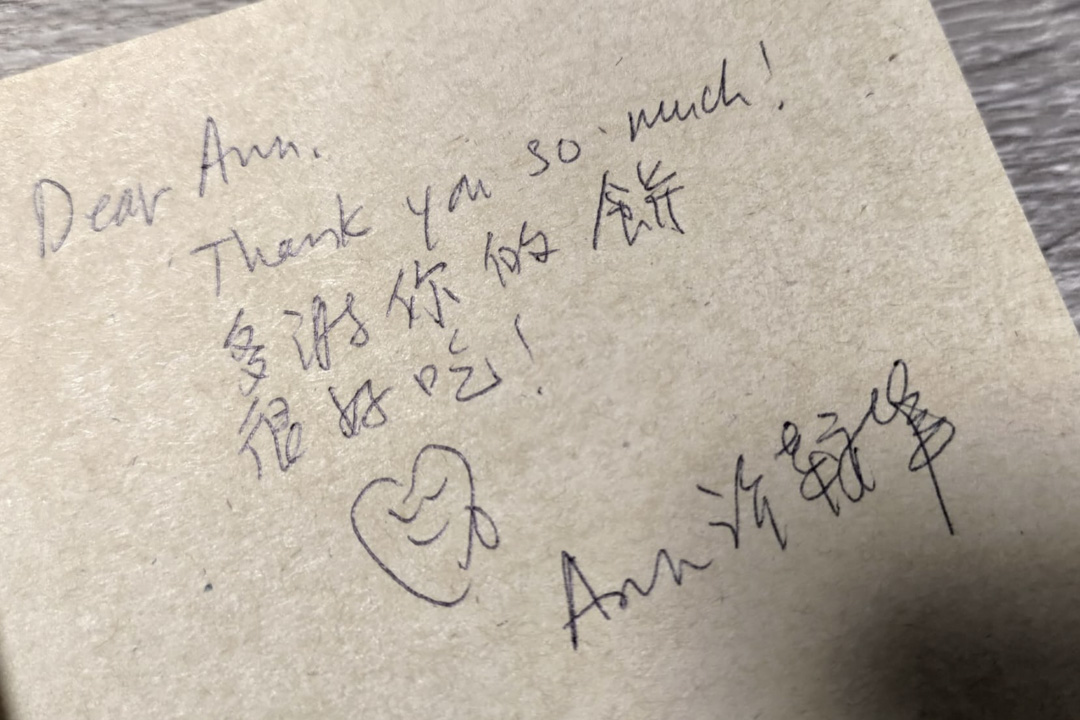 Dear Ann.
Thank you so much!
多謝你的餅
很好吃!
Ann 许